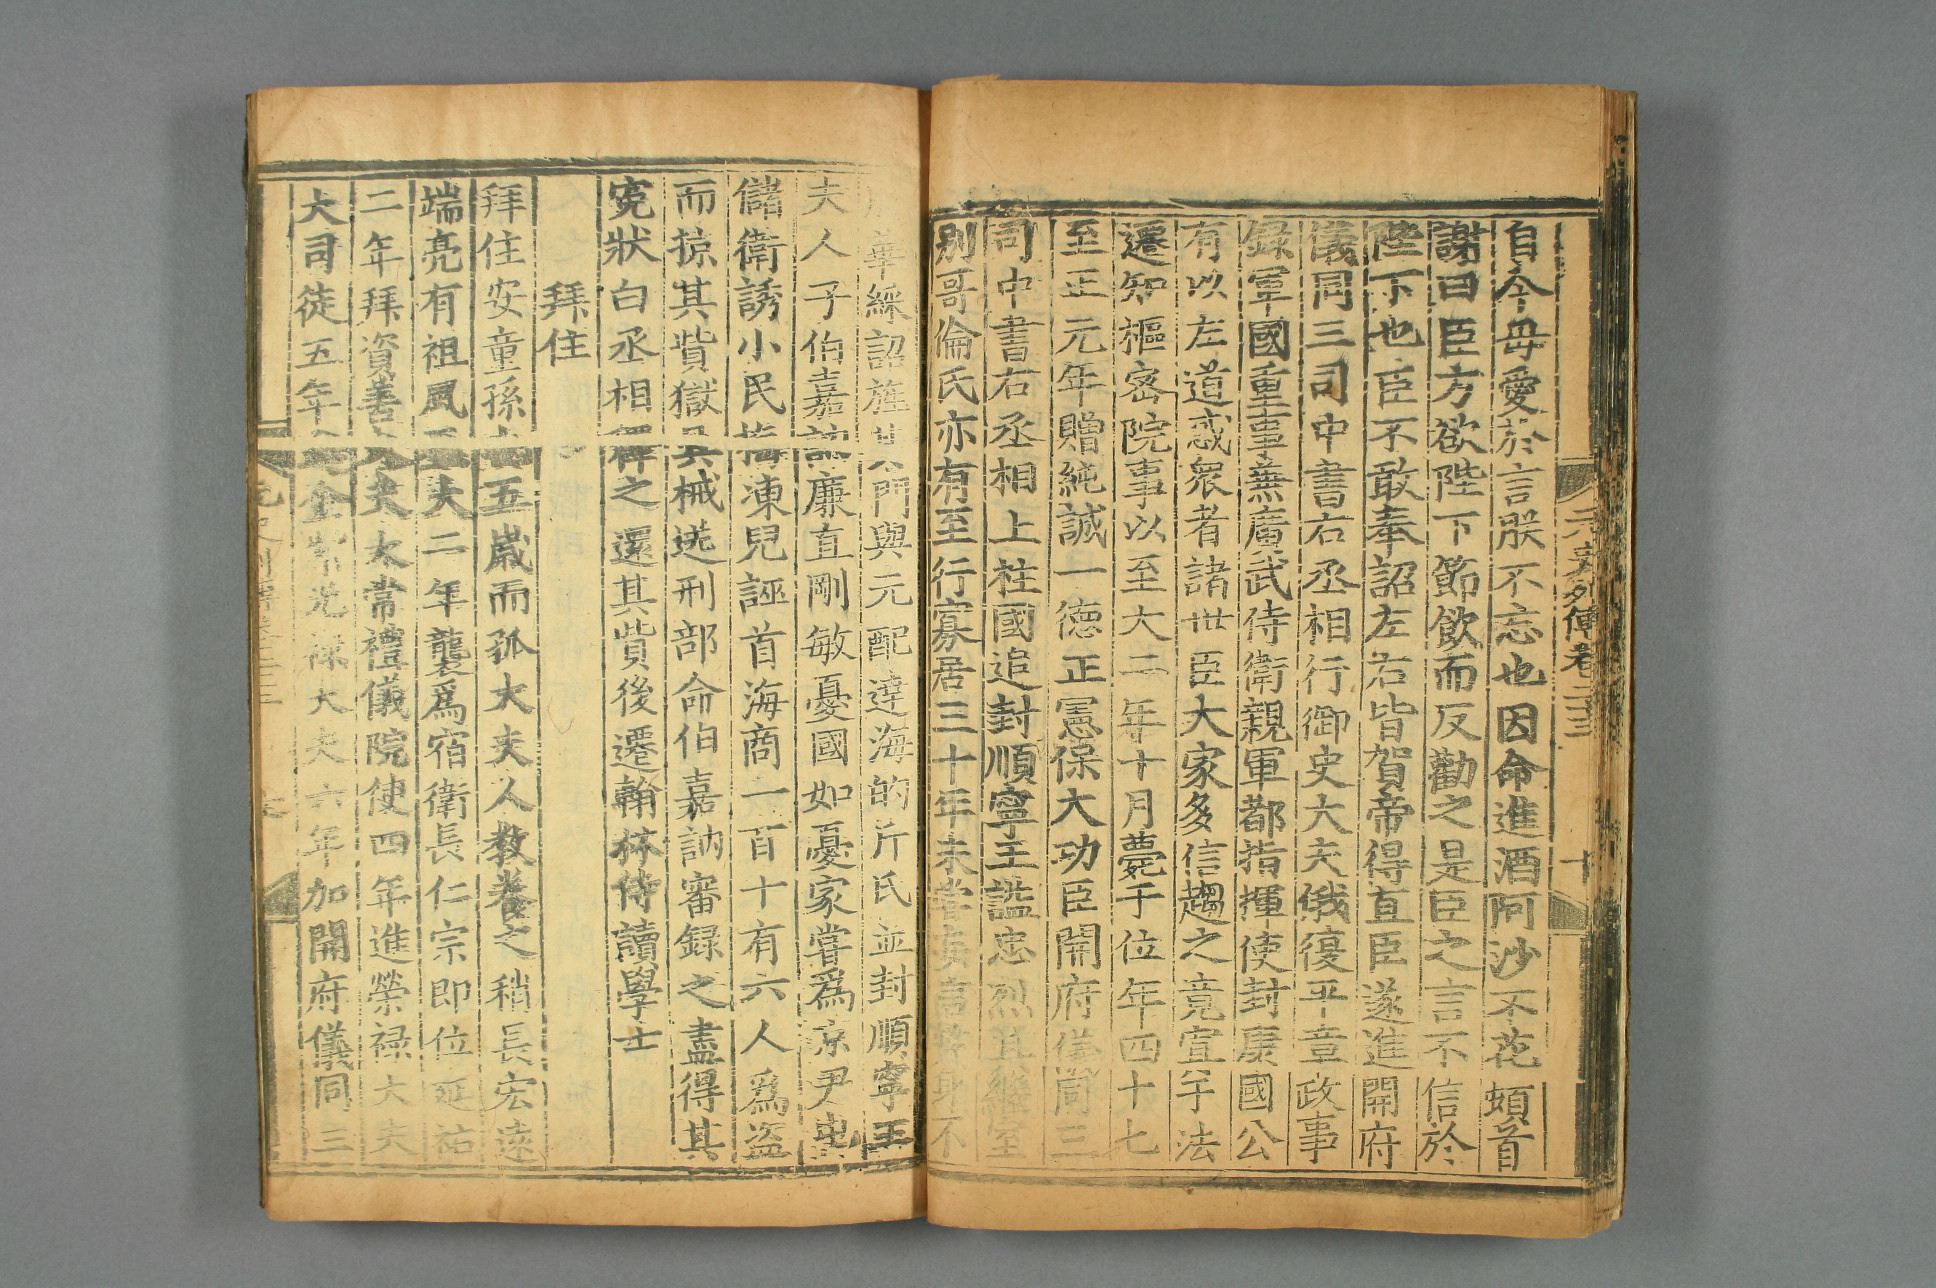 自今毋愛於言朕不忘也因命進酒阿沙不花頓首
謝曰臣方欲陛下節飲而反勸之是臣之言不信於
陛下也臣不敢奉詔左右皆賀帝得直臣遂進開府
儀同三司中書右丞相行御史大夫俄復平章政事
録軍國重事兼廣武侍衛親軍都指揮使封康國公
有以左道惑衆者諸世臣大家多信趨之竟宜于法
遷知樞密院事以至大二年十月薨于位年四十七
至正元年贈純誠一德正憲保大功臣開府儀同三
司中書右丞相上柱國追封順寧王諡忠烈其繼室
別哥倫氏亦有至行寡居三十年未嘗妄言笑身不
華綵詔旌其門與元配達海的斤氏並封順寧王
夫人子伯嘉訥廉直剛敏憂國如憂家嘗爲京尹
儲衛誘小民梅凍兒誣首海商一百十有六人爲盜
而掠其貲獄具械送刑部命伯嘉訥審録之盡得其
寃狀白丞相釋之還其貲後遷翰林侍讀學士
拜住
拜住安童孫也五歲而孤太夫人教養之稍長宏遠
端亮有祖風至大二年襲爲宿衛長仁宗即位延祐
二年拜資善大夫太常禮儀院使四年進榮禄大夫
大司徒五年金紫光禄大夫六年加開府儀同三
元史列傳卷二十三
十